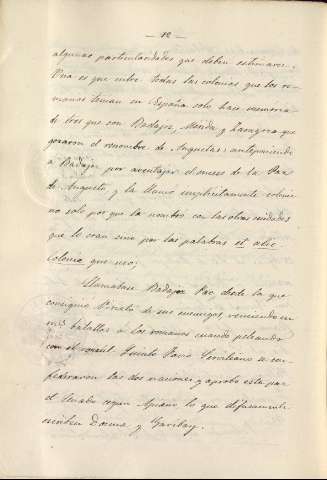 - 12 -
algunas particularidades que deben estimarse.
Una es que entre todas las colonias que los ro-
manos tenian en España solo hace memoria
de tres que son Badajoz, Mérida y Zaragoza que
gozaron el renombre de Augustas: anteponiendo
a Badajoz por aventajar el exceso de la Paz
de Augusto, y la llama implicitamente colonia
no solo por que la nombra con las otras ciudades
que lo eran sino por las palabras et aliae
colonia que usó;
Llamabase Badajoz Paz, desde la que
consiguio Viriato de sus enemigos, venciendo en
mil batallas a los romanos cuando peleando
con el consul Quinto Fabio Serviliano se con-
federaron las dos naciones y aprobó esta paz
el Senado segun Apiano lo que difusamente
escriben Osuna y Garibay.